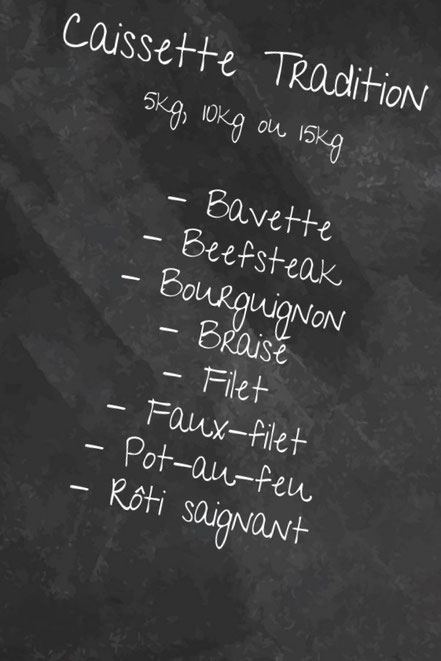 Caissette Tradition
5kg, 10kg ou 15kg
- Bavette
- Beefsteak
- Bourguignon
- Braisé
- Filet
- Faux-filet
- Pot-au-feu
- Rôti saignant